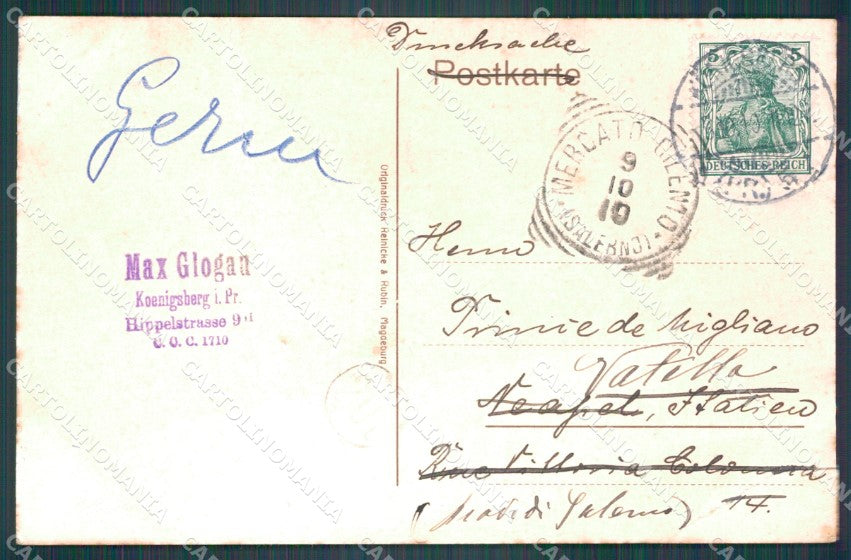 Drucksache
Postkarte
DEUTSCHES REICH
MERCATO CILENTO
9
10
10
(SALERNO)
Gern
Originaldruck Heinicke & Rubin, Magdeburg
Max Glogau
Koenigsberg i. Pr.
Hippelstrasse 9 II
C. O. C. 1710
Herrn
Prince de Migliano
Vatolla
Neapel, Italien
Rue Vittoria Colonna
14.
di Salerno)
CARTOLINOMANIA